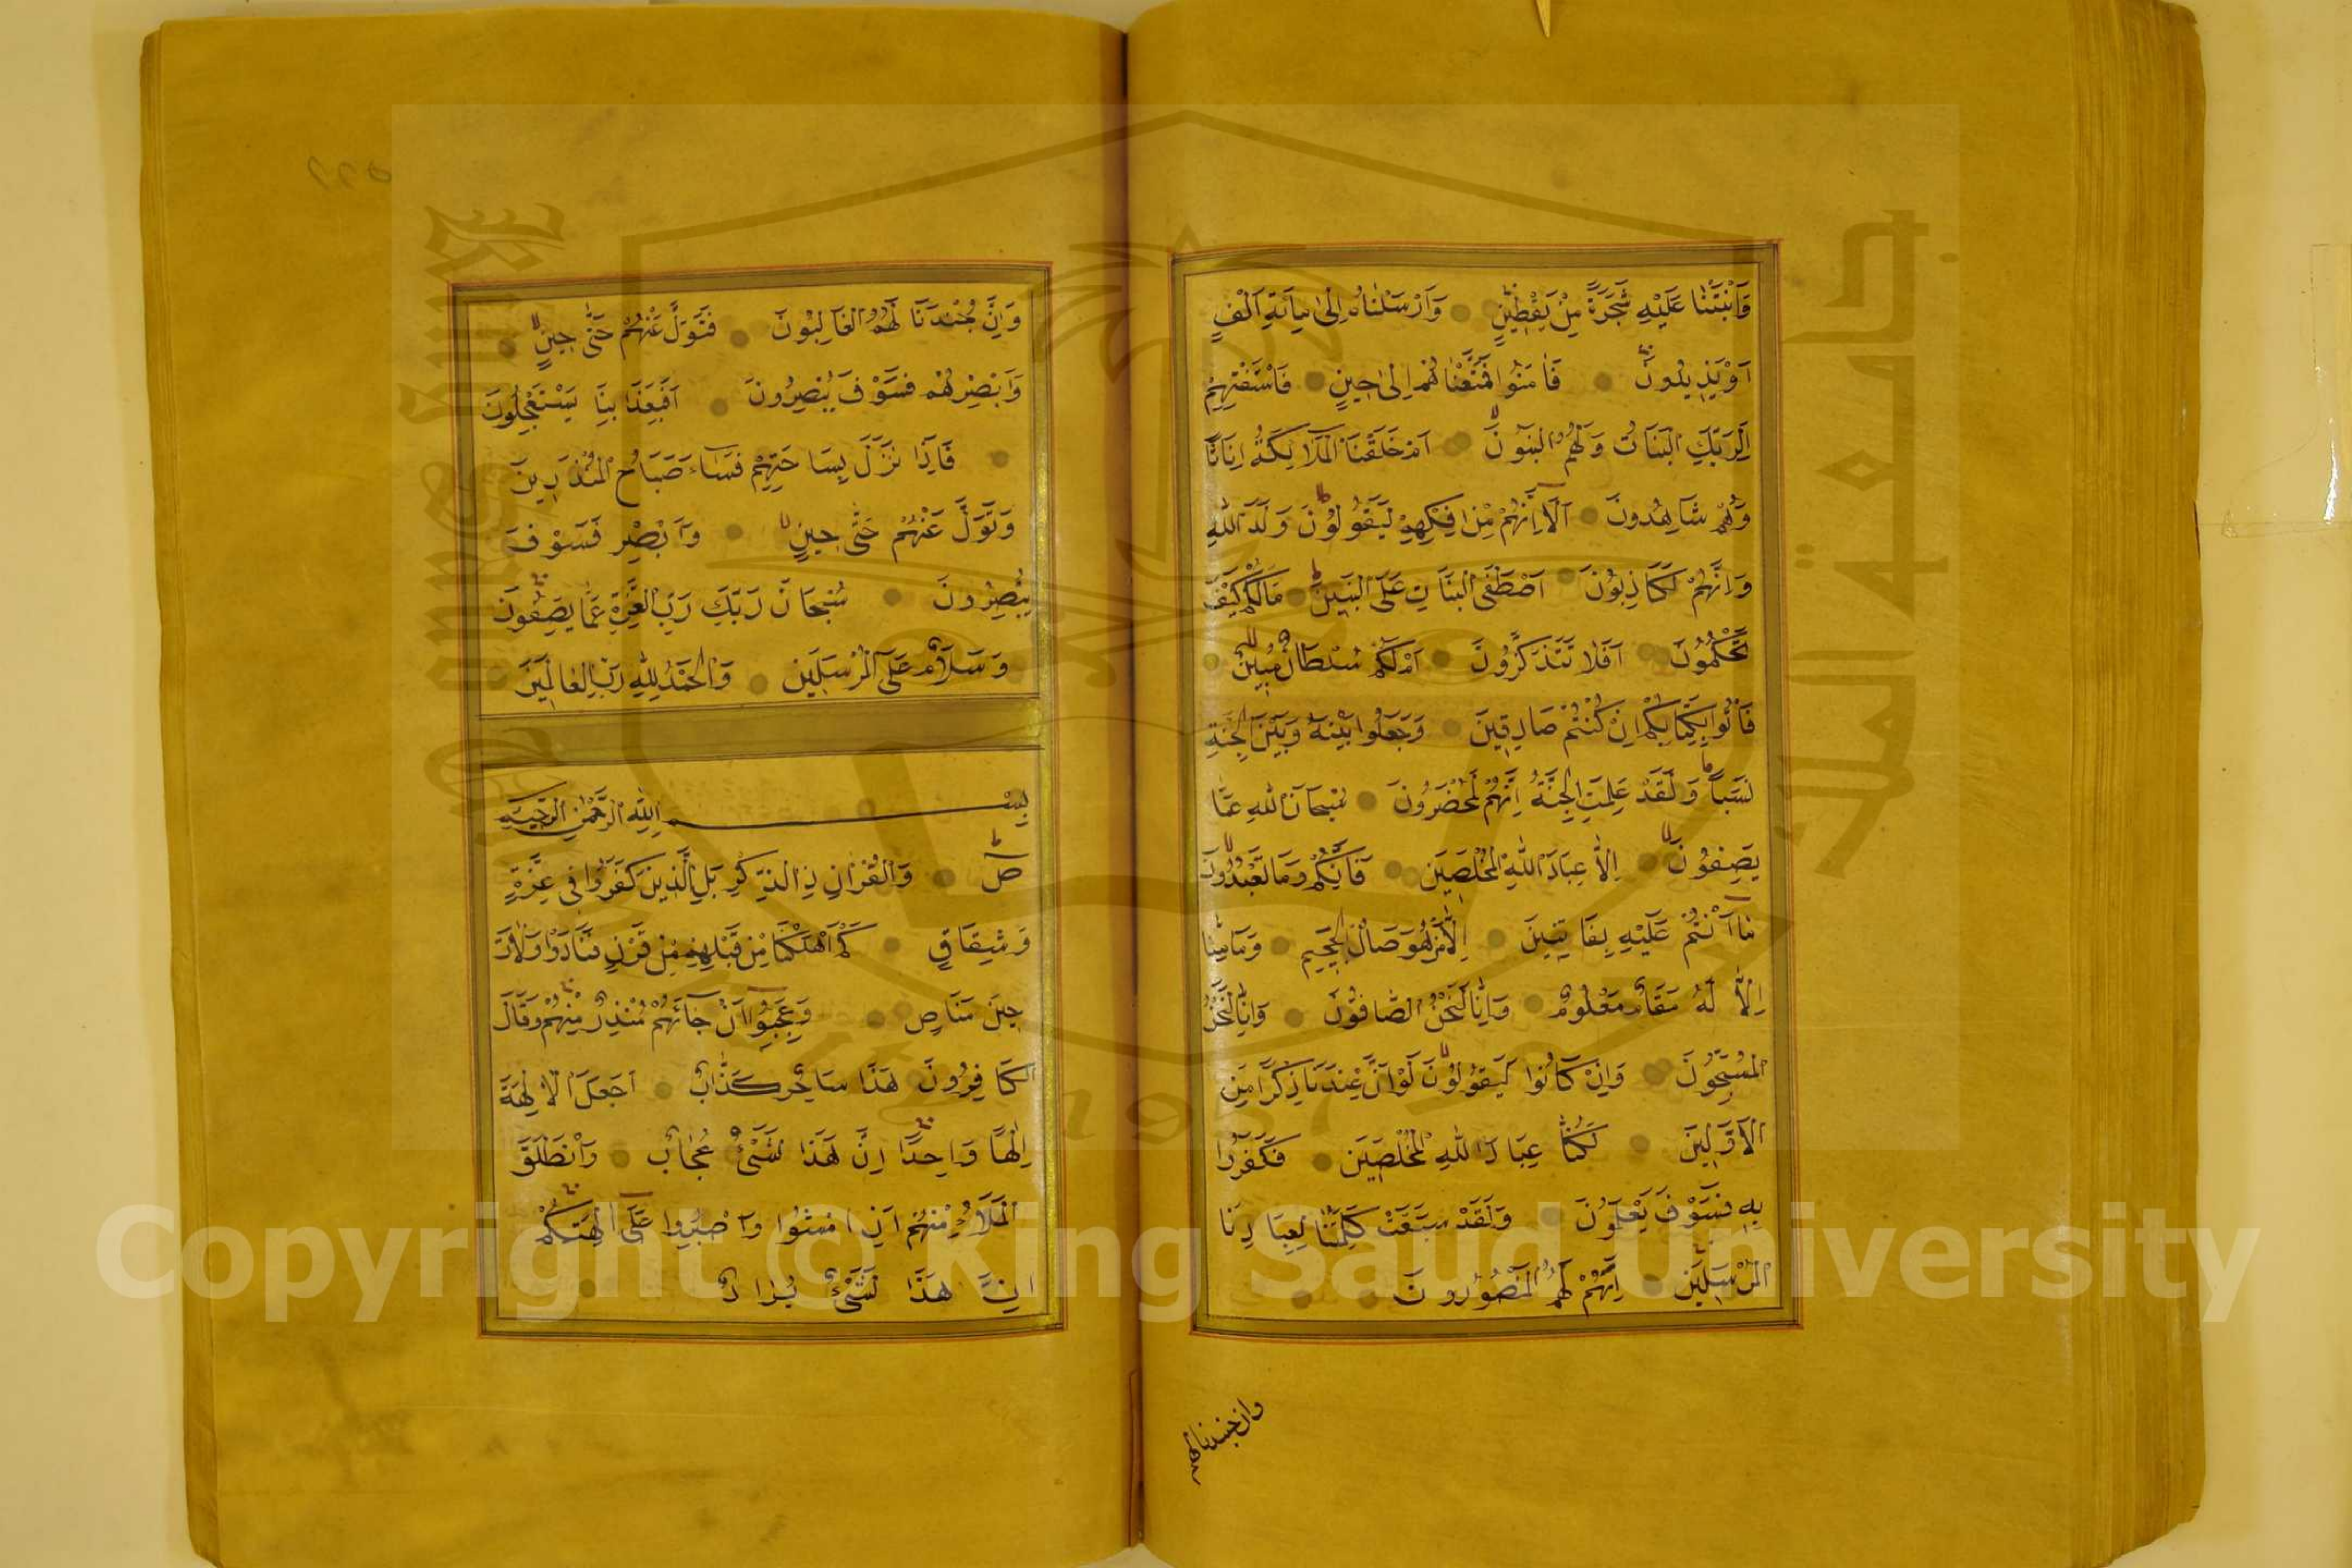 وَاَنْبَتْنَا عَلَيْهِ شَجَرَةً مِنْ يَقْطِينٍ وَاَرْسَلْنَاهُ اِلٰى مِائَةِ اَلْفٍ
اَوْ يَزِيدُونَ فَاٰمَنُوا فَمَتَّعْنَاهُمْ اِلٰى حِينٍ فَاسْتَفْتِهِمْ
اَلِرَبِّكَ الْبَنَاتُ وَلَهُمُ الْبَنُونَ اَمْ خَلَقْنَا الْمَلَائِكَةَ اِنَاثًا
وَهُمْ شَاهِدُونَ اَلَا اِنَّهُمْ مِنْ اِفْكِهِمْ لَيَقُولُونَ وَلَدَ اللّٰهُ
وَاِنَّهُمْ لَكَاذِبُونَ اَصْطَفَى الْبَنَاتِ عَلَى الْبَنِينَ مَالَكُمْ كَيْفَ
تَحْكُمُونَ اَفَلَا تَتَذَكَّرُونَ اَمْ لَكُمْ سُلْطَانٌ مُبِينٌ
فَاْتُوا بِكِتَابِكُمْ اِنْ كُنْتُمْ صَادِقِينَ وَجَعَلُوا بَيْنَهُ وَبَيْنَ الْجِنَّةِ
نَسَبًا وَلَقَدْ عَلِمَتِ الْجِنَّةُ اِنَّهُمْ لَمُحْضَرُونَ سُبْحَانَ اللّٰهِ عَمَّا
يَصِفُونَ اِلَّا عِبَادَ اللّٰهِ الْمُخْلَصِينَ فَاِنَّكُمْ وَمَا تَعْبُدُونَ
مَا اَنْتُمْ عَلَيْهِ بِفَاتِنِينَ اِلَّا مَنْ هُوَ صَالِ الْجَحِيمِ وَمَا مِنَّا
اِلَّا لَهُ مَقَامٌ مَعْلُومٌ وَاِنَّا لَنَحْنُ الصَّافُّونَ وَاِنَّا لَنَحْنُ
الْمُسَبِّحُونَ وَاِنْ كَانُوا لَيَقُولُونَ لَوْ اَنَّ عِنْدَنَا ذِكْرًا مِنَ
الْاَوَّلِينَ لَكُنَّا عِبَادَ اللّٰهِ الْمُخْلَصِينَ فَكَفَرُوا
بِهِ فَسَوْفَ يَعْلَمُونَ وَلَقَدْ سَبَقَتْ كَلِمَتُنَا لِعِبَادِنَا
الْمُرْسَلِينَ اِنَّهُمْ لَهُمُ الْمَنْصُورُونَ
وان جندنا لهم
وَاِنَّ جُنْدَنَا لَهُمُ الْغَالِبُونَ فَتَوَلَّ عَنْهُمْ حَتّٰى حِينٍ
وَاَبْصِرْهُمْ فَسَوْفَ يُبْصِرُونَ اَفَبِعَذَابِنَا يَسْتَعْجِلُونَ
فَاِذَا نَزَلَ بِسَاحَتِهِمْ فَسَاءَ صَبَاحُ الْمُنْذَرِينَ
وَتَوَلَّ عَنْهُمْ حَتّٰى حِينٍ وَاَبْصِرْ فَسَوْفَ
يُبْصِرُونَ سُبْحَانَ رَبِّكَ رَبِّ الْعِزَّةِ عَمَّا يَصِفُونَ
وَسَلَامٌ عَلَى الْمُرْسَلِينَ وَالْحَمْدُ لِلّٰهِ رَبِّ الْعَالَمِينَ
بِسْمِ اللّٰهِ الرَّحْمٰنِ الرَّحِيمِ
صٓ وَالْقُرْاٰنِ ذِي الذِّكْرِ بَلِ الَّذِينَ كَفَرُوا فِي عِزَّةٍ
وَشِقَاقٍ كَمْ اَهْلَكْنَا مِنْ قَبْلِهِمْ مِنْ قَرْنٍ فَنَادَوْا وَلَاتَ
حِينَ مَنَاصٍ وَعَجِبُوا اَنْ جَاءَهُمْ مُنْذِرٌ مِنْهُمْ وَقَالَ
الْكَافِرُونَ هٰذَا سَاحِرٌ كَذَّابٌ اَجَعَلَ الْاٰلِهَةَ
اِلٰهًا وَاحِدًا اِنَّ هٰذَا لَشَيْءٌ عُجَابٌ وَانْطَلَقَ
الْمَلَاُ مِنْهُمْ اَنِ امْشُوا وَاصْبِرُوا عَلٰى اٰلِهَتِكُمْ
اِنَّ هٰذَا لَشَيْءٌ يُرَادُ
Copyright © King Saud University